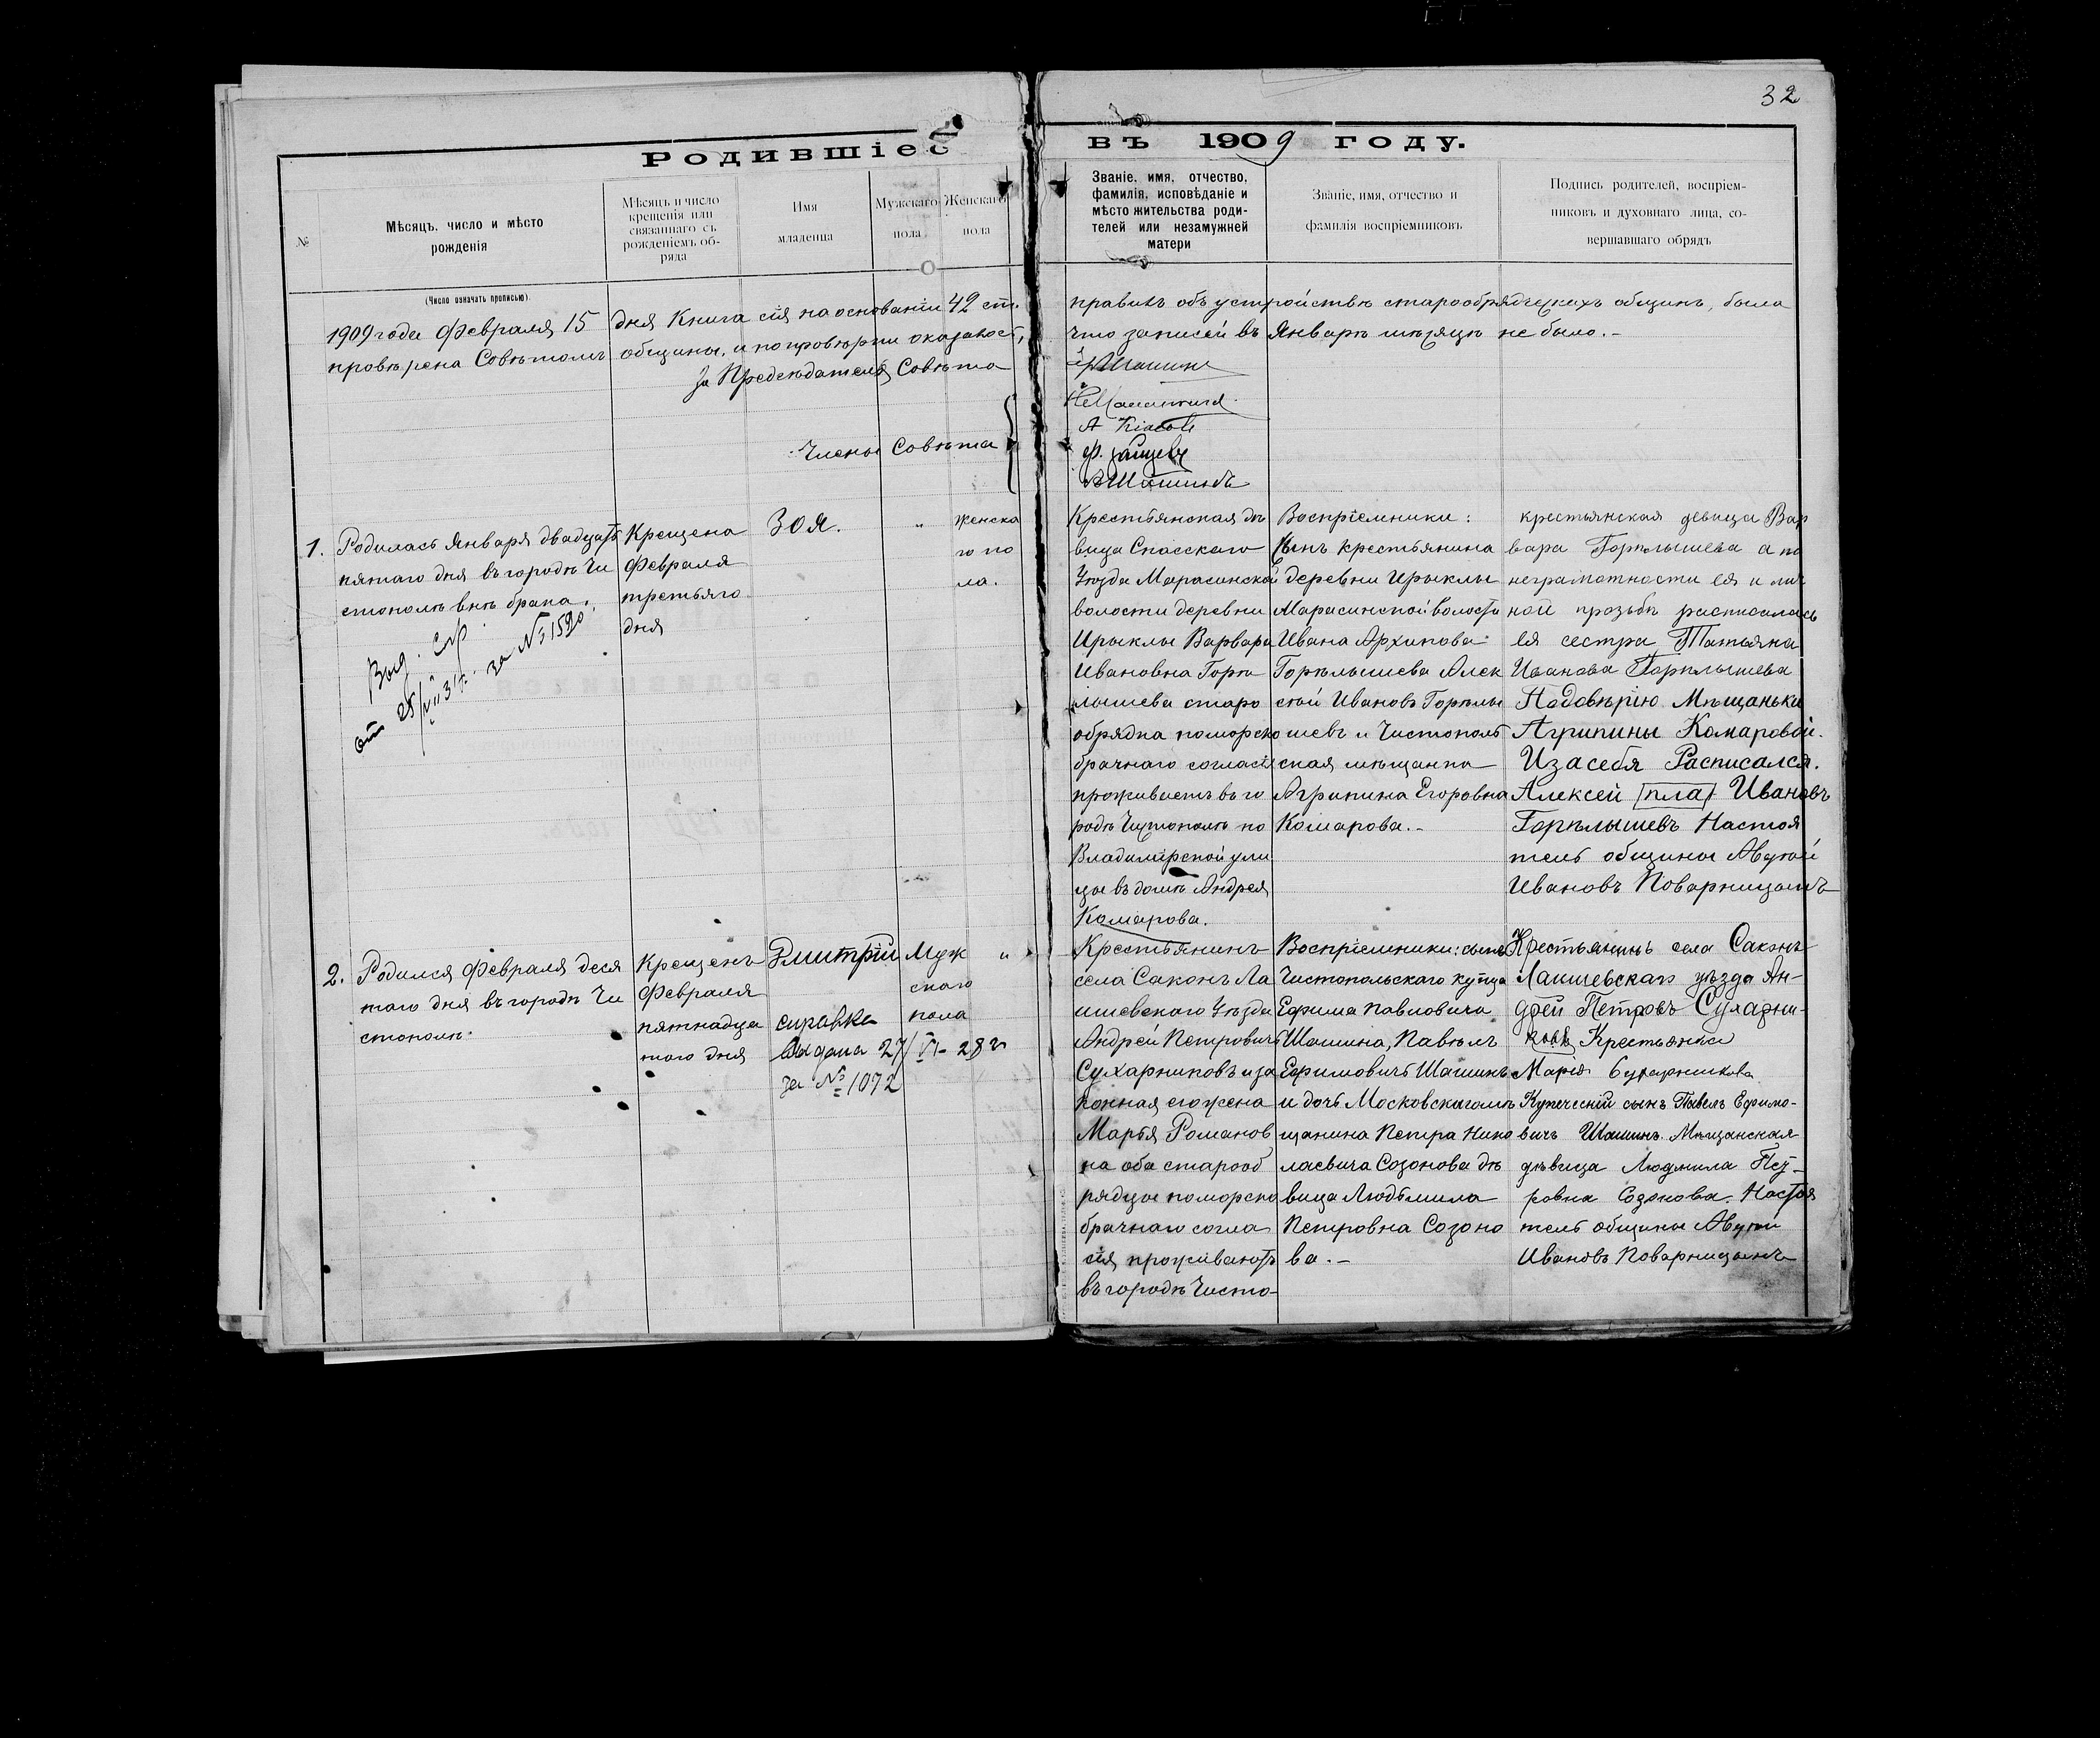 32
Родившіеся
въ 1909 году.
№
Мѣсяцъ, число и мѣсто
рожденія
Мѣсяцъ и число
крещенія или
связаннаго съ
рожденіемъ об-
ряда
Имя
младенца
Мужскаго
пола
Женскаго
пола
Званіе, имя, отчество,
фамилія, исповѣданіе и
мѣсто жительства роди-
телей или незамужней
матери
Званіе, имя, отчество и
фамилія воспріемниковъ
Подпись родителей, воспріем-
никовъ и духовнаго лица, со-
вершавшаго обрядъ
(Число означать прописью).
1909 года Февраля 15 дня Книга сія на основаніи 42 ст.
правилъ объ устройствѣ старообрядческихъ общинъ, была
провѣрена Совѣтомъ общины, и по провѣрки оказалось,
что записей въ Январѣ мѣсяцѣ не было.-
За Предсѣдателя Совѣта
Члены Совѣта
Ф. Зайцевъ
1.
Родилась Января двадцать
пятаго дня въ городѣ Чи
стополѣ внѣ брака.
Выд. спр
за № 1590
Крещена
Февраля
третьяго
дня
Зоя.
"
женска
го по
ла.
Крестьянская дѣ
вица Спасскаго
Уѣзда Марасинской
волости деревни
Ирыклы Варвара
Ивановна Горѣ
лышева старо
обрядка поморско
брачнаго согласія
проживаетъ въ го
родѣ Чистополѣ по
Владимірской ули
цы въ домѣ Андрея
Комарова.
Воспріемники:
Сынъ крестьянина
деревни Ирыклы
Марасинской волости
Ивана Архипова
Горѣлышева Алек
сѣй Ивановъ Горѣлы
шевъ и Чистополь
ская мѣщанка
Агрипина Егоровна
Комарова.-
крестьянская девица Вар
вара Горѣлышева а по
неграмотности ея и лич
ной прозьбѣ расписалась
ея сестра Татьяна
Иванова Горѣлышева
Подовѣрію Мѣщаньки
Агрипины Комаровой.
Изасебя Расписался.
Алексей [пла] Ивановъ
Горѣлышевъ Настоя
тель общины Авдѣй
Ивановъ Поварницынъ
2.
Родился Февраля деся
таго дня въ городѣ Чи
стополѣ.
Крещенъ
Февраля
пятнадца
таго дня
Дмитрій
справка
выдана 27/VI-28 г
за № 1072
Муж
скаго
пола
"
Крестьянинъ
села Саконъ Ла
ишевскаго Уѣзда
Андрей Петровичъ
Сухарниковъ и за
конная его жена
Марья Романов
на оба старооб
рядцы поморско
брачнаго согла
сія проживаютъ
въ городѣ Чисто-
Воспріемники: сынъ
Чистопольскаго купца
Ефима Павловича
Шашина, Павелъ
Ефимовичъ Шашинъ
и дочь Московскаго мѣ
щанина Петра Нико
лаевича Созонова дѣ
вица Людмила
Петровна Созоно
ва.-
Крестьянинъ села Саконъ
Лаишевскаго уѣзда Ан-
дрей Петровъ Сухарни-
ковъ Крестьянка
Марія Сухарникова
Купеческій сынъ Павелъ Ефимо-
вичъ Шашинъ. Мѣщанская
дѣвица Людмила Пет-
ровна Созонова. Настоя
тель общины Авдѣй
Ивановъ Поварницынъ